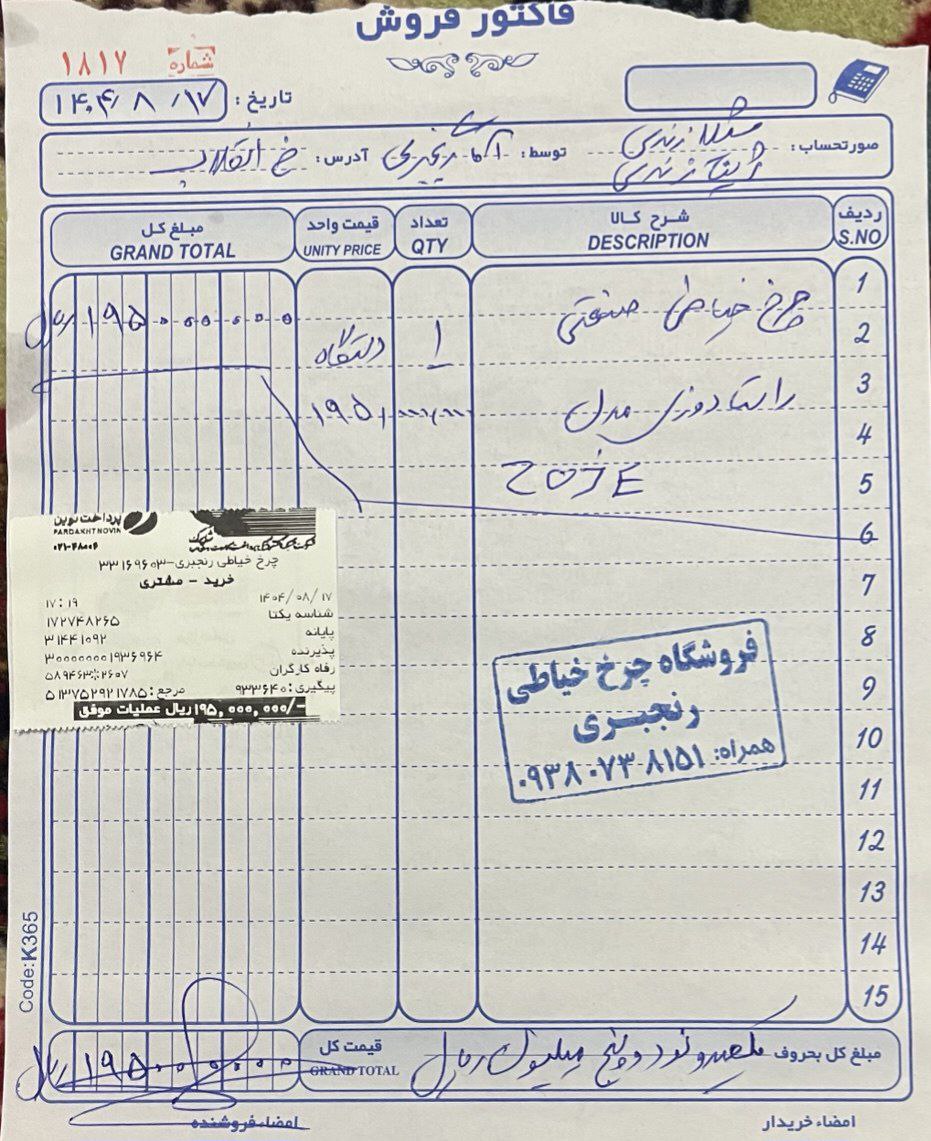 فاکتور فروش
شماره ۱۸۱۷
تاریخ: ۱۴۰۴/۸/۱۷
صورتحساب: زندی
زندی
توسط: آدرس: خ انقلاب
ردیف S.NO
شرح کالا DESCRIPTION
تعداد QTY
قیمت واحد UNITY PRICE
مبلغ کل GRAND TOTAL
1
چرخ خیاطی صنعتی
۱۹۵۰۰۰۰۰۰ ریال
2
۱ دستگاه
3
راستا دوزی مدل
۱۹۵,۰۰۰,۰۰۰
4
5
ZOJE
6
7
8
9
10
11
12
13
14
15
پرداخت نوین
PARDAKHT NOVIN
۰۲۱-۴۸۰۰۶
چرخ خیاطی رنجبری-۳۳۱۶۹۶۰۳
خرید - مشتری
۱۴۰۴/۰۸/۱۷ ۱۷:۱۹
شناسه یکتا ۱۷۲۷۴۸۲۶۵
پایانه ۳۱۴۴۱۰۹۲
پذیرنده ۳۰۰۰۰۰۰۰۱۹۳۶۹۶۴
رفاه کارگران ۵۸۹۴۶۳*۲۶۰۷
پیگیری: ۹۳۳۶۴۰ مرجع: ۵۱۳۷۵۲۹۲۱۷۸۵
۱۹۵,۰۰۰,۰۰۰/- ریال عملیات موفق
فروشگاه چرخ خیاطی
رنجبری
همراه: ۰۹۳۸۰۷۳۸۱۵۱
Code:K365
مبلغ کل بحروف یکصد و نود و پنج میلیون ریال
قیمت کل GRAND TOTAL
۱۹۵۰۰۰۰۰۰ ریال
امضاء خریدار
امضاء فروشنده